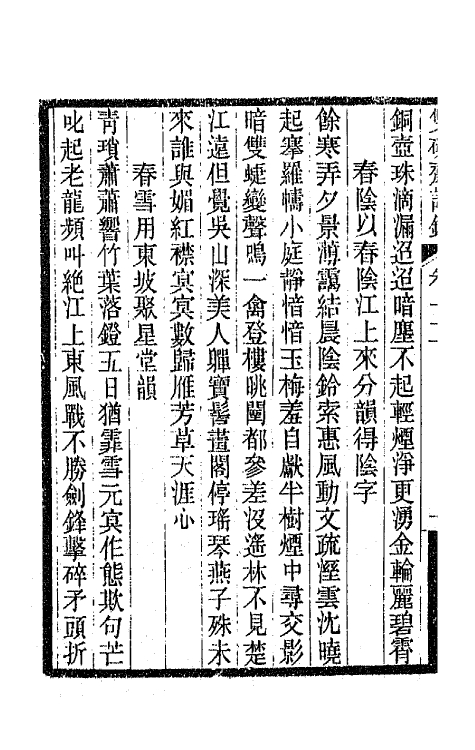 銅壺珠滴漏迢迢暗塵不起輕煙淨更湧金輪麗碧霄
春陰以春陰江上來分韻得陰字
餘寒弄夕景薄靄結晨陰鈴索惠風動文疏溼雲沈曉
起搴羅幬小庭靜愔愔玉梅羞自獻半樹煙中尋交影
暗雙蜨變聲鳴一禽登樓眺闉都參差沒遙林不見楚
江遠但覺吳山深美人嚲寶髻畫閣停瑤琴燕子殊未
來誰與媚紅襟冥冥數歸雁芳草天涯心
春雪用東坡聚星堂韻
青瑣蕭蕭響竹葉落鐙五日猶霏雪元冥作態欺句芒
叱起老龍頻叫絕江上東風戰不勝劍鋒擊碎矛頭折